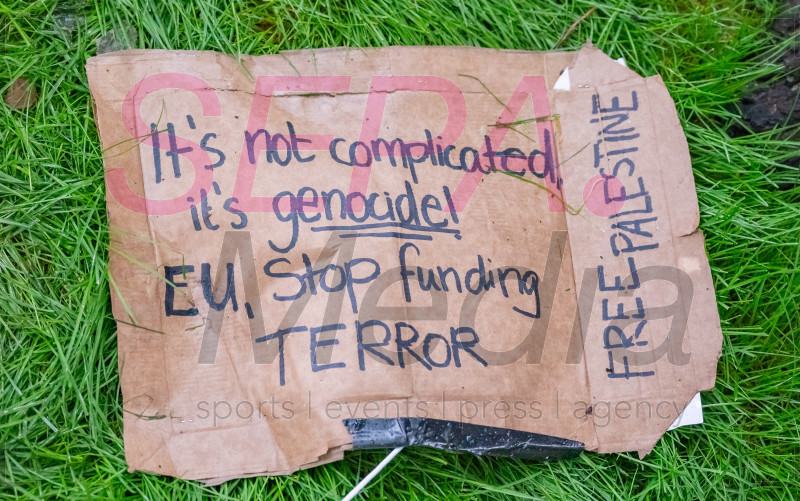 It's not complicated,
it's genocide!
EU, Stop funding
TERROR
FREE PALESTINE
SEPA.
Media
sports | events | press | agency